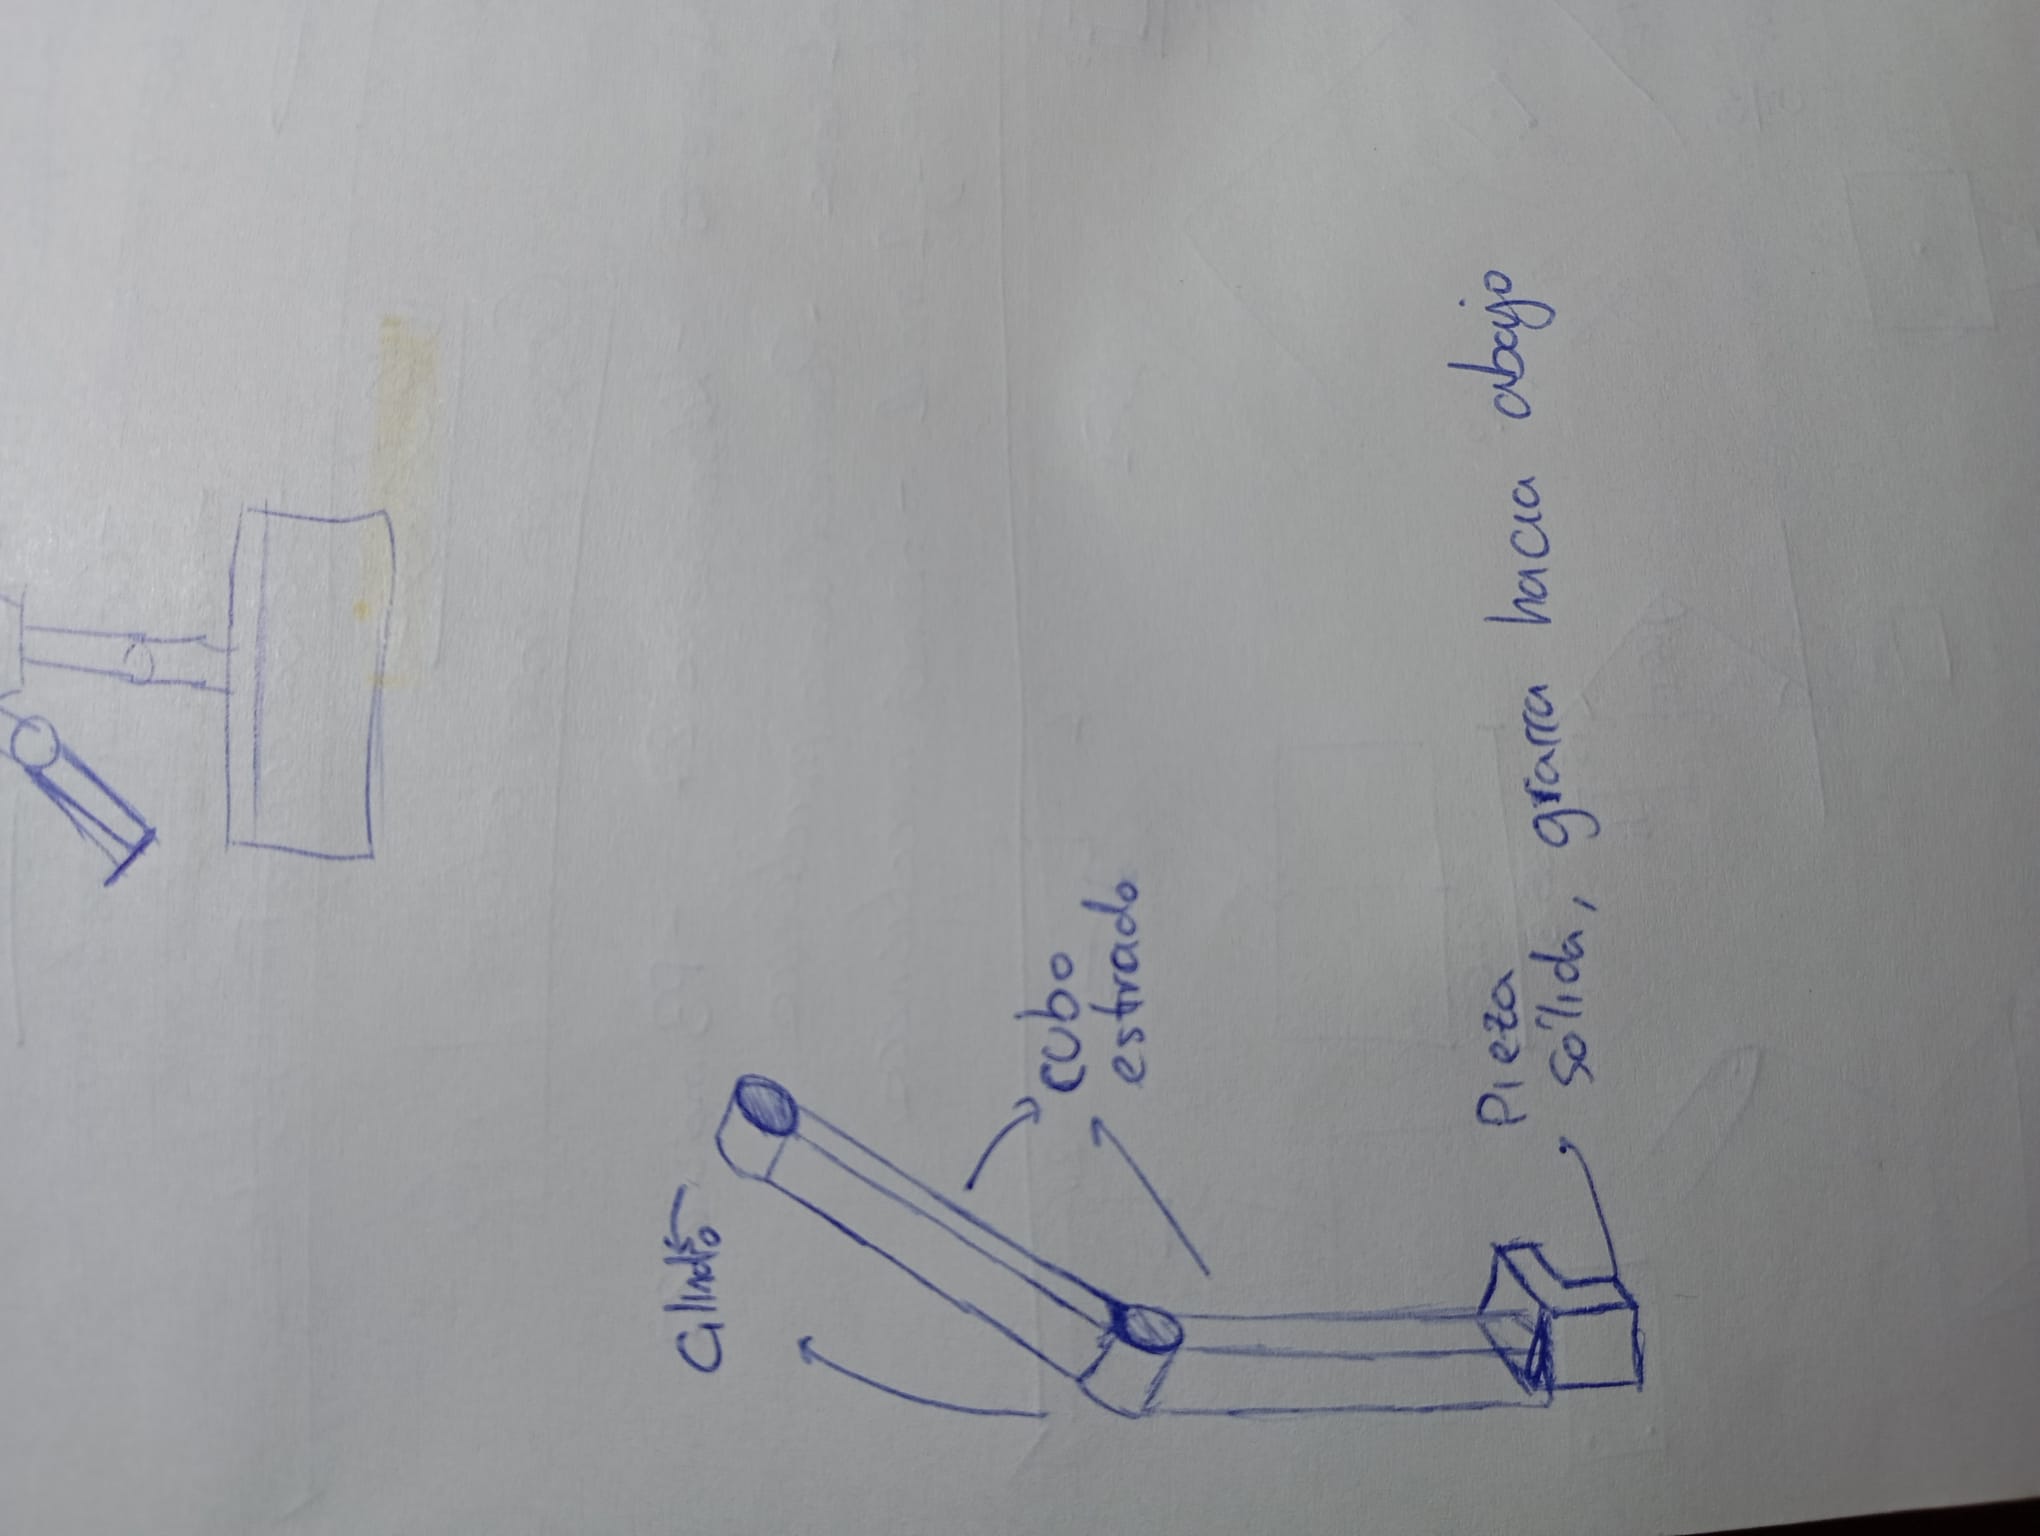 Cilindro
cubo
estirado
Pieza
sólida, garra hacia abajo